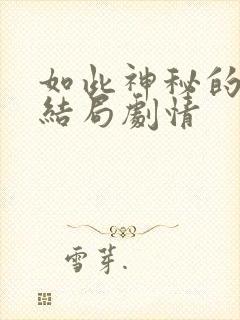 如此神秘的
結局劇情
雪芽.